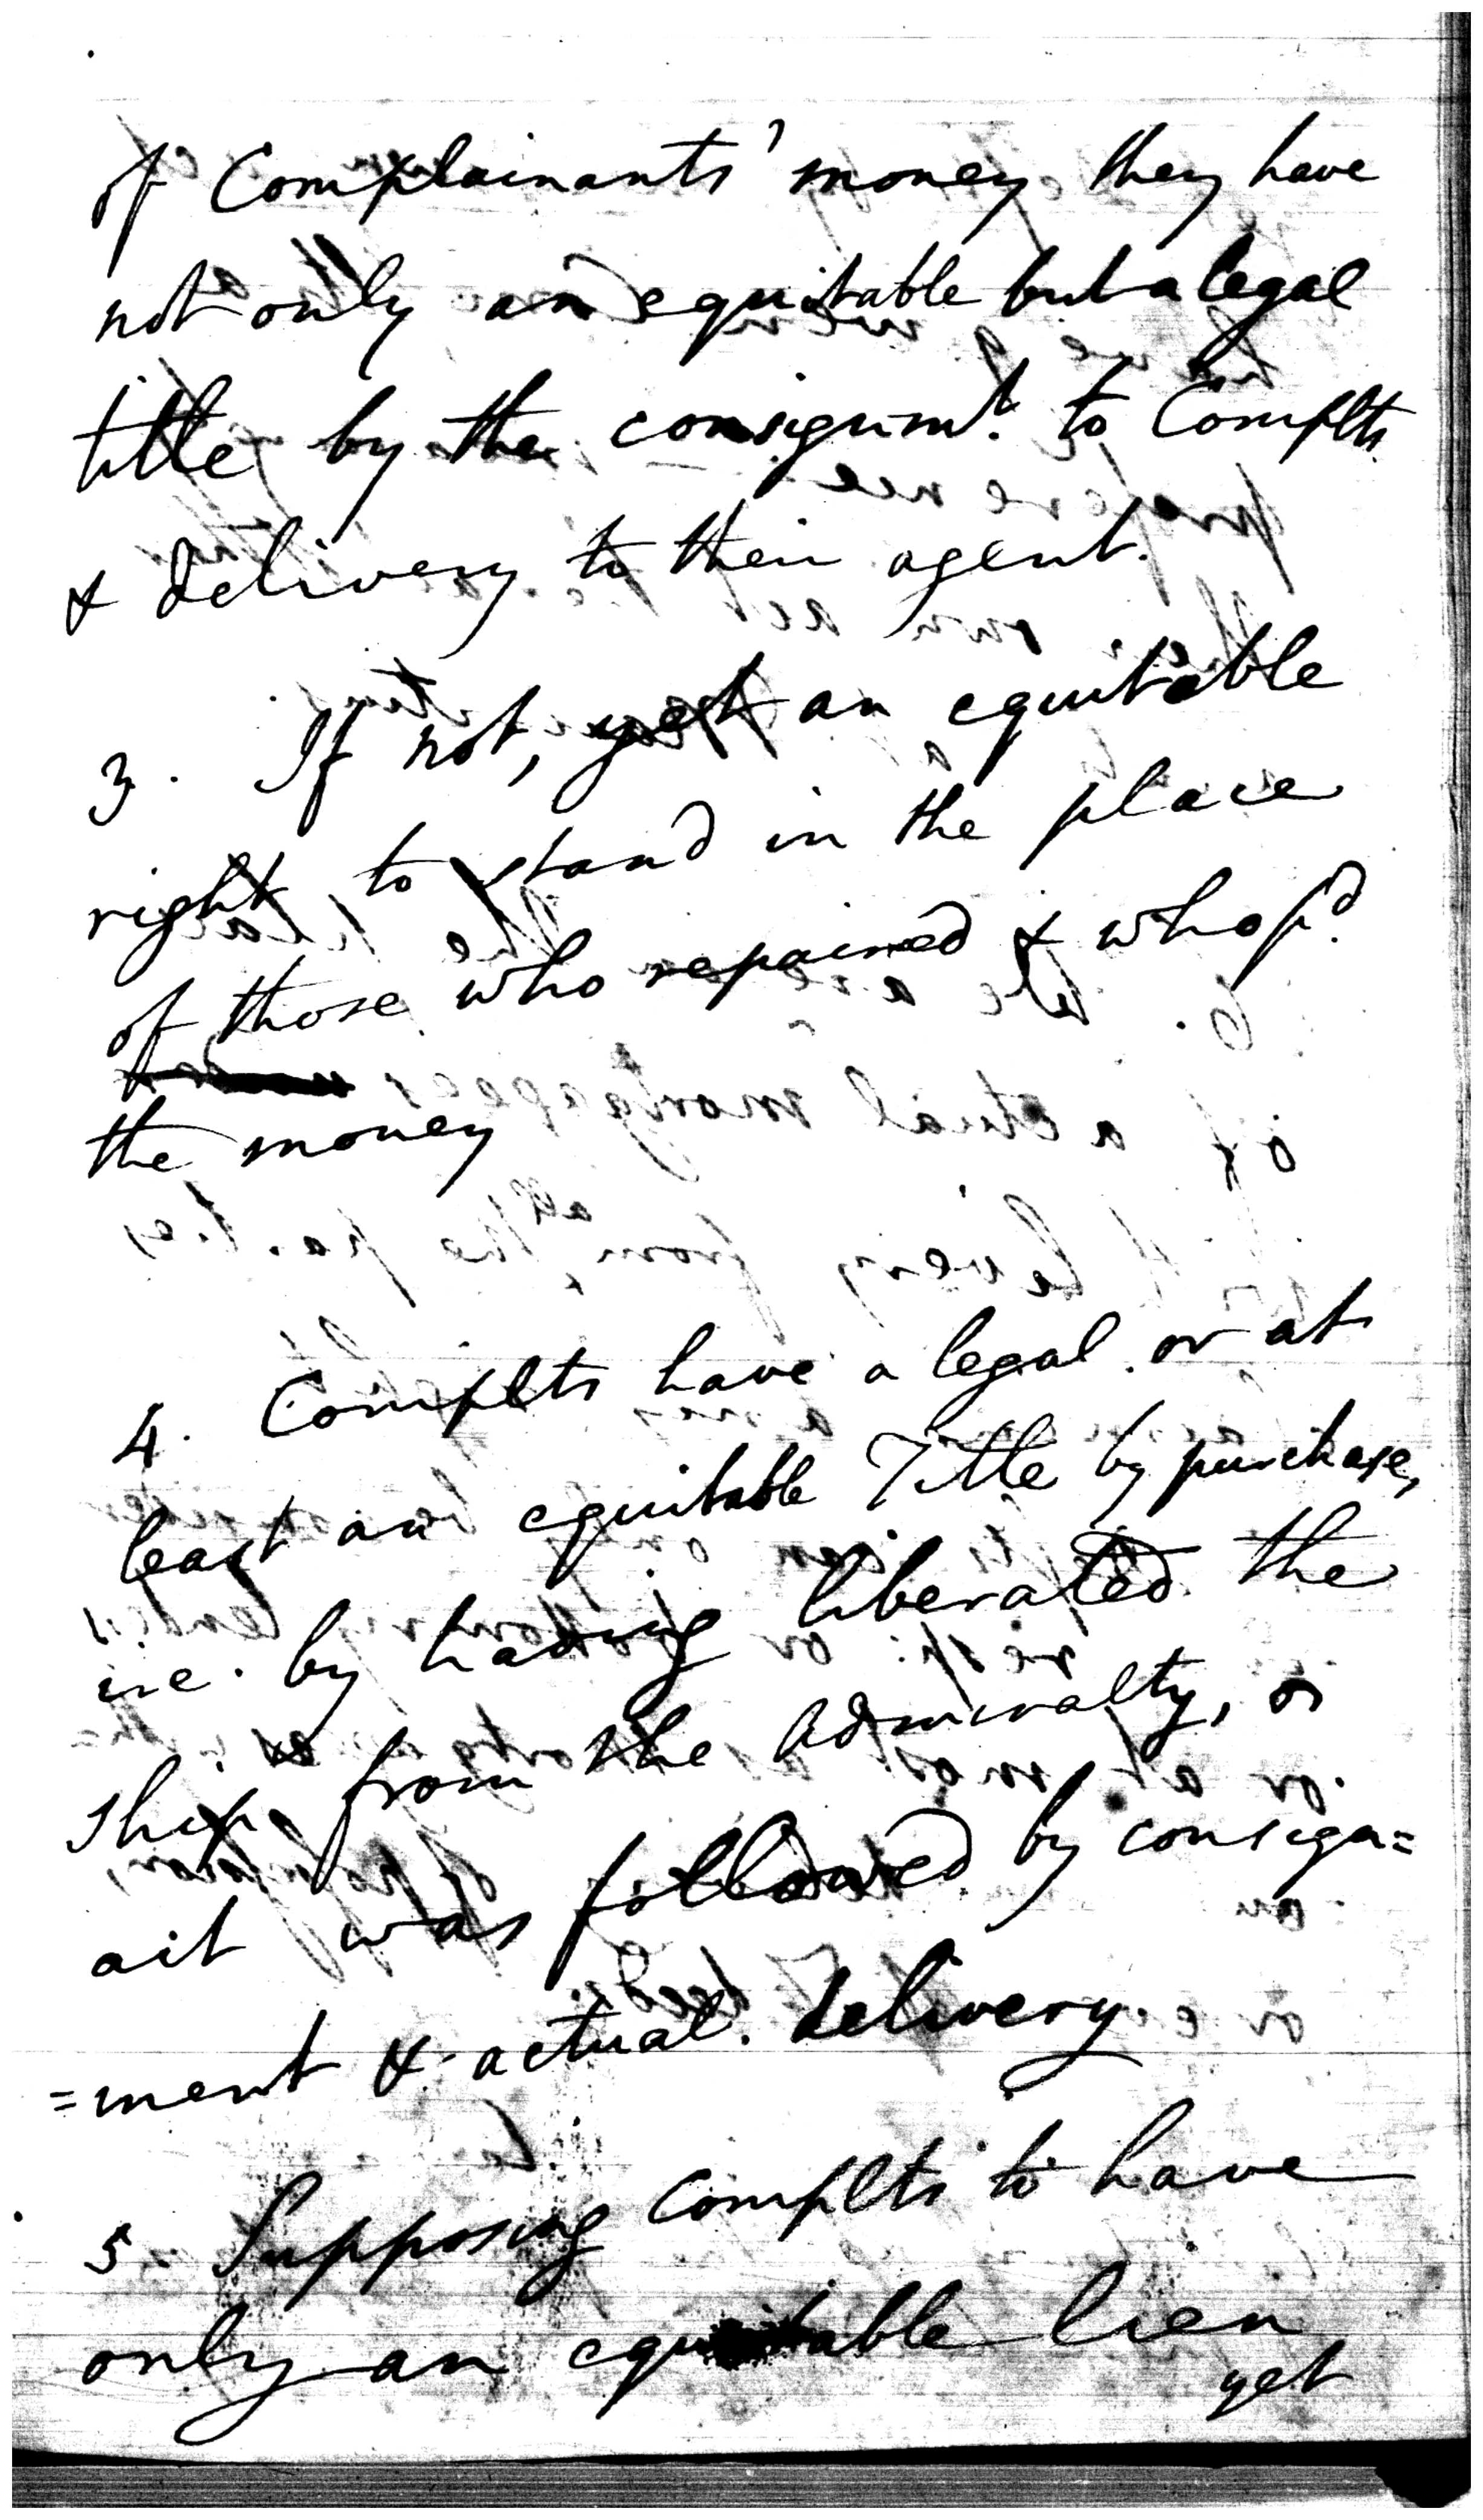 of Complainants' money they have
not only an equitable but a legal
title by the consignmt. to Complts
& delivery to their agent.
3. If not, yet an equitable
right to stand in the place
of those who repaired & who pd.
the money
4. Complts have a legal or at
least an equitable Title by purchase,
i.e. by having liberated the
ship from the Admiralty, &
ait was followed by consign=
=ment & actual delivery
5 Supposing Complts to have
only an equitable lien
yet